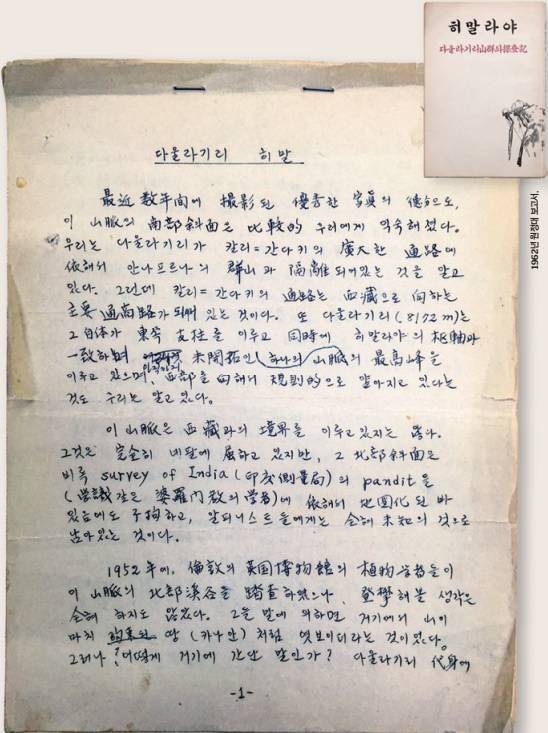 히말라야
다울라기리山群의探査記
1962년 원정대 보고서.
다울라기리 히말
最近 数年間에 撮影된 優秀한 写眞의 德分으로,
이 山脈의 南部斜面은 比較的 우리에게 익숙해졌다.
우리는 다울라기리가 칼리=간다키의 廣大한 通路에
依해서 안나푸르나의 群山과 隔離되어있는 것을 알고
있다. 그런데 칼리=간다키의 通路는 西藏으로 向하는
主要 通商路가 되어 있는 것이다. 또 다울라기리(8172m)는
그 自体가 東쪽 支柱를 이루고 同時에 히말라야의 枢軸과
一致하며 未開拓인 하나의 山脈의 最高峰을
이루고 있으며, 西部를 向해서 規則的으로 얕아지고 있다는
것도 우리는 알고 있다.
이 山脈은 西藏과의 境界를 이루고있지는 않다.
그것은 完全히 네팔에 屬하고 있지만, 그 北部斜面은
비록 survey of India (印度測量局)의 pandit을
(学識 같은 婆羅門敎의 学者)에 依해서 地図化 된 바
있음에도 不拘하고, 알피니스트들에게는 全혀 未知의 것으로
남아있는 것이다.
1952年에, 倫敦의 英国博物館의 植物学者들이
이 山脈의 北部溪谷을 踏査하였으나 登攀해볼 생각은
全혀 하지도 않았다. 그들 말에 의하면 거기에의 山이
마치 땅 (카나안) 처럼 엿보이더라는 것이었다.
그러나? 어떻게 거기에 간단 말인가? 다울라기리 代身에
-1-